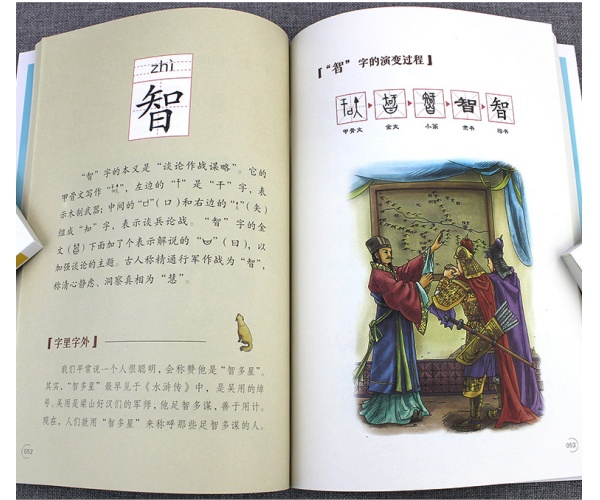 zhì
智
“智”字的本义是“谈论作战谋略”。它的
甲骨文写作“”,左边的“干”是“干”字,表
示木制武器;中间的“口”(口)和右边的“”(矢)
组成“知”字,表示谈兵论战。“智”字的金
文()下面加了个表示解说的“”(曰),以
加强谈论的主题。古人称精通行军作战为“智”,
称清心静虑、洞察真相为“慧”。
【字里字外】
我们平常说一个人很聪明,会称赞他是“智多星”。
其实,“智多星”最早见于《水浒传》中,是吴用的绰
号。吴用是梁山好汉们的军师,他足智多谋,善于用计。
现在,人们就用“智多星”来称呼那些足智多谋的人。
052
【“智”字的演变过程】
智 智
甲骨文 金文 小篆 隶书 楷书
053